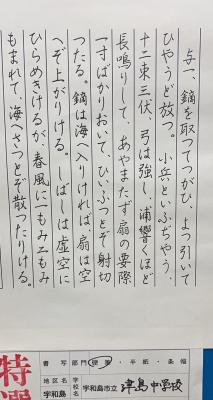 与一、鏑を取つてつがひ、よつ引いて
ひやうど放つ。小兵といふぢやう、
十二束三伏、弓は強し、浦響くほど
長鳴りして、あやまたず扇の要際
一寸ばかりおいて、ひいふつとぞ射切
つたる。鏑は海へ入りければ、扇は空
へぞ上がりける。しばしは虚空に
ひらめきけるが、春風に一もみ二もみ
もまれて、海へさつとぞ散つたりける。
特選
書写部門 硬筆・半紙・条幅
地区名 宇和島 学校名 宇和島市立 津島中学校